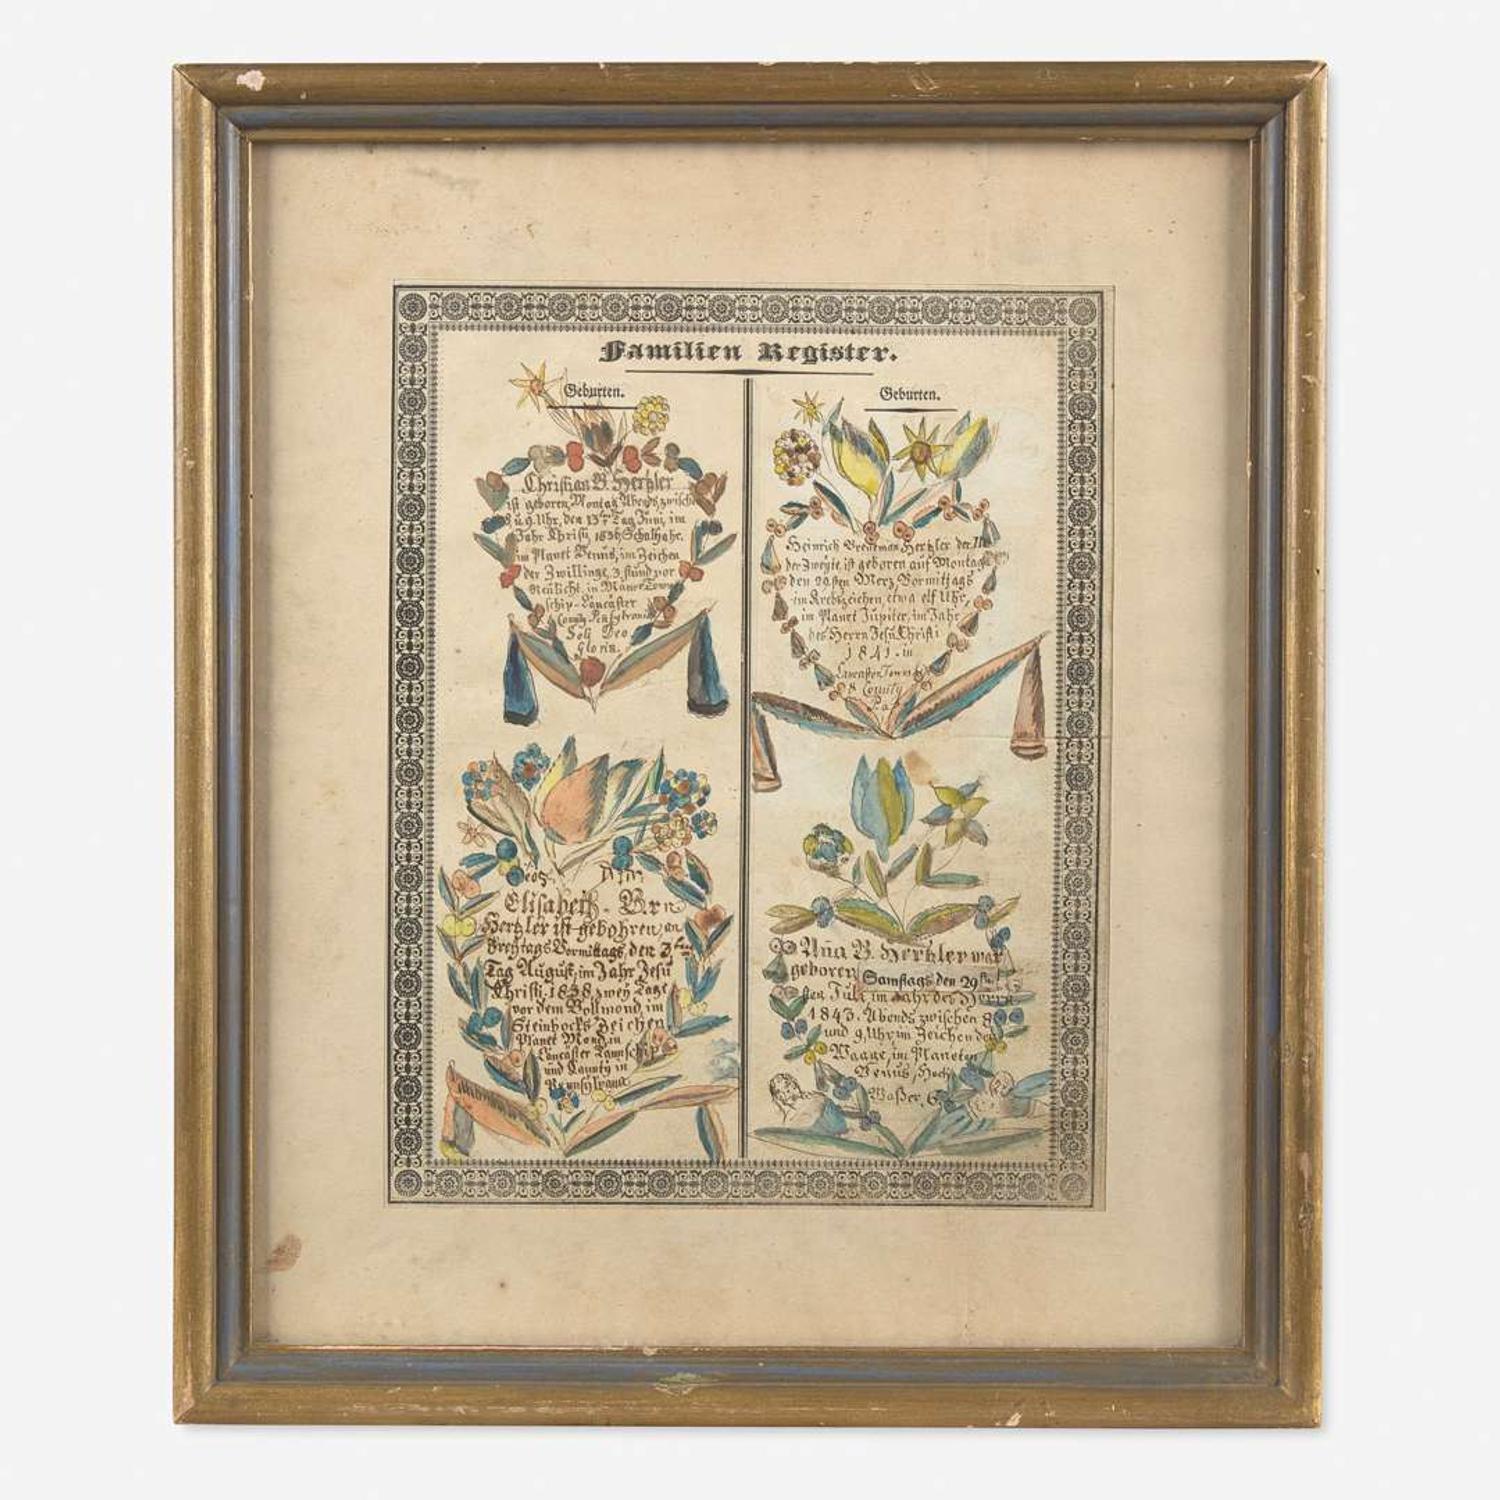 Familien Register.
Geburten.
Christian B. Hertzler
ist geboren, Montag Abends zwische
8 u 9. Uhr, den 13te Tag Juni, im
Jahr Christi, 1836, Schaltjahr.
im Planet Venus, im Zeichen
der Zwillinge, 3. stund vor
Neulicht, in Town
schip - Lancaster
County
Soli Deo
Gloria.
Elisabeth
Hertzler ist gebohren, an
Freytags Vormittags, den 3ten
Tag August, im Jahr Jesu
Christi, 1838, zwey Tage
vor dem Vollmond, im
Steinbocks Zeichen
Planet Mond, in
Lancaster Taunschip
und Caunty in
Pennsylvana
Geburten.
Heinrich Breneman Hertzler der
der Zweyte, ist geboren auf Montag
den 29.sten Merz Vormittags
im Krebszeichen, etwa elf Uhr,
im Planet Jupiter, im Jahr
des Herrn Jesu Christi
1841. in
Lancaster Town
& County
Pa
Aña B. Hertzler war
geboren Samstags den 29
sten Juli, im Jahr des Herrn
1843. Abends zwischen 8
und 9, Uhr, im Zeichen der
Waage, im Planeten
Venus, Hoch
Waßer, 6,